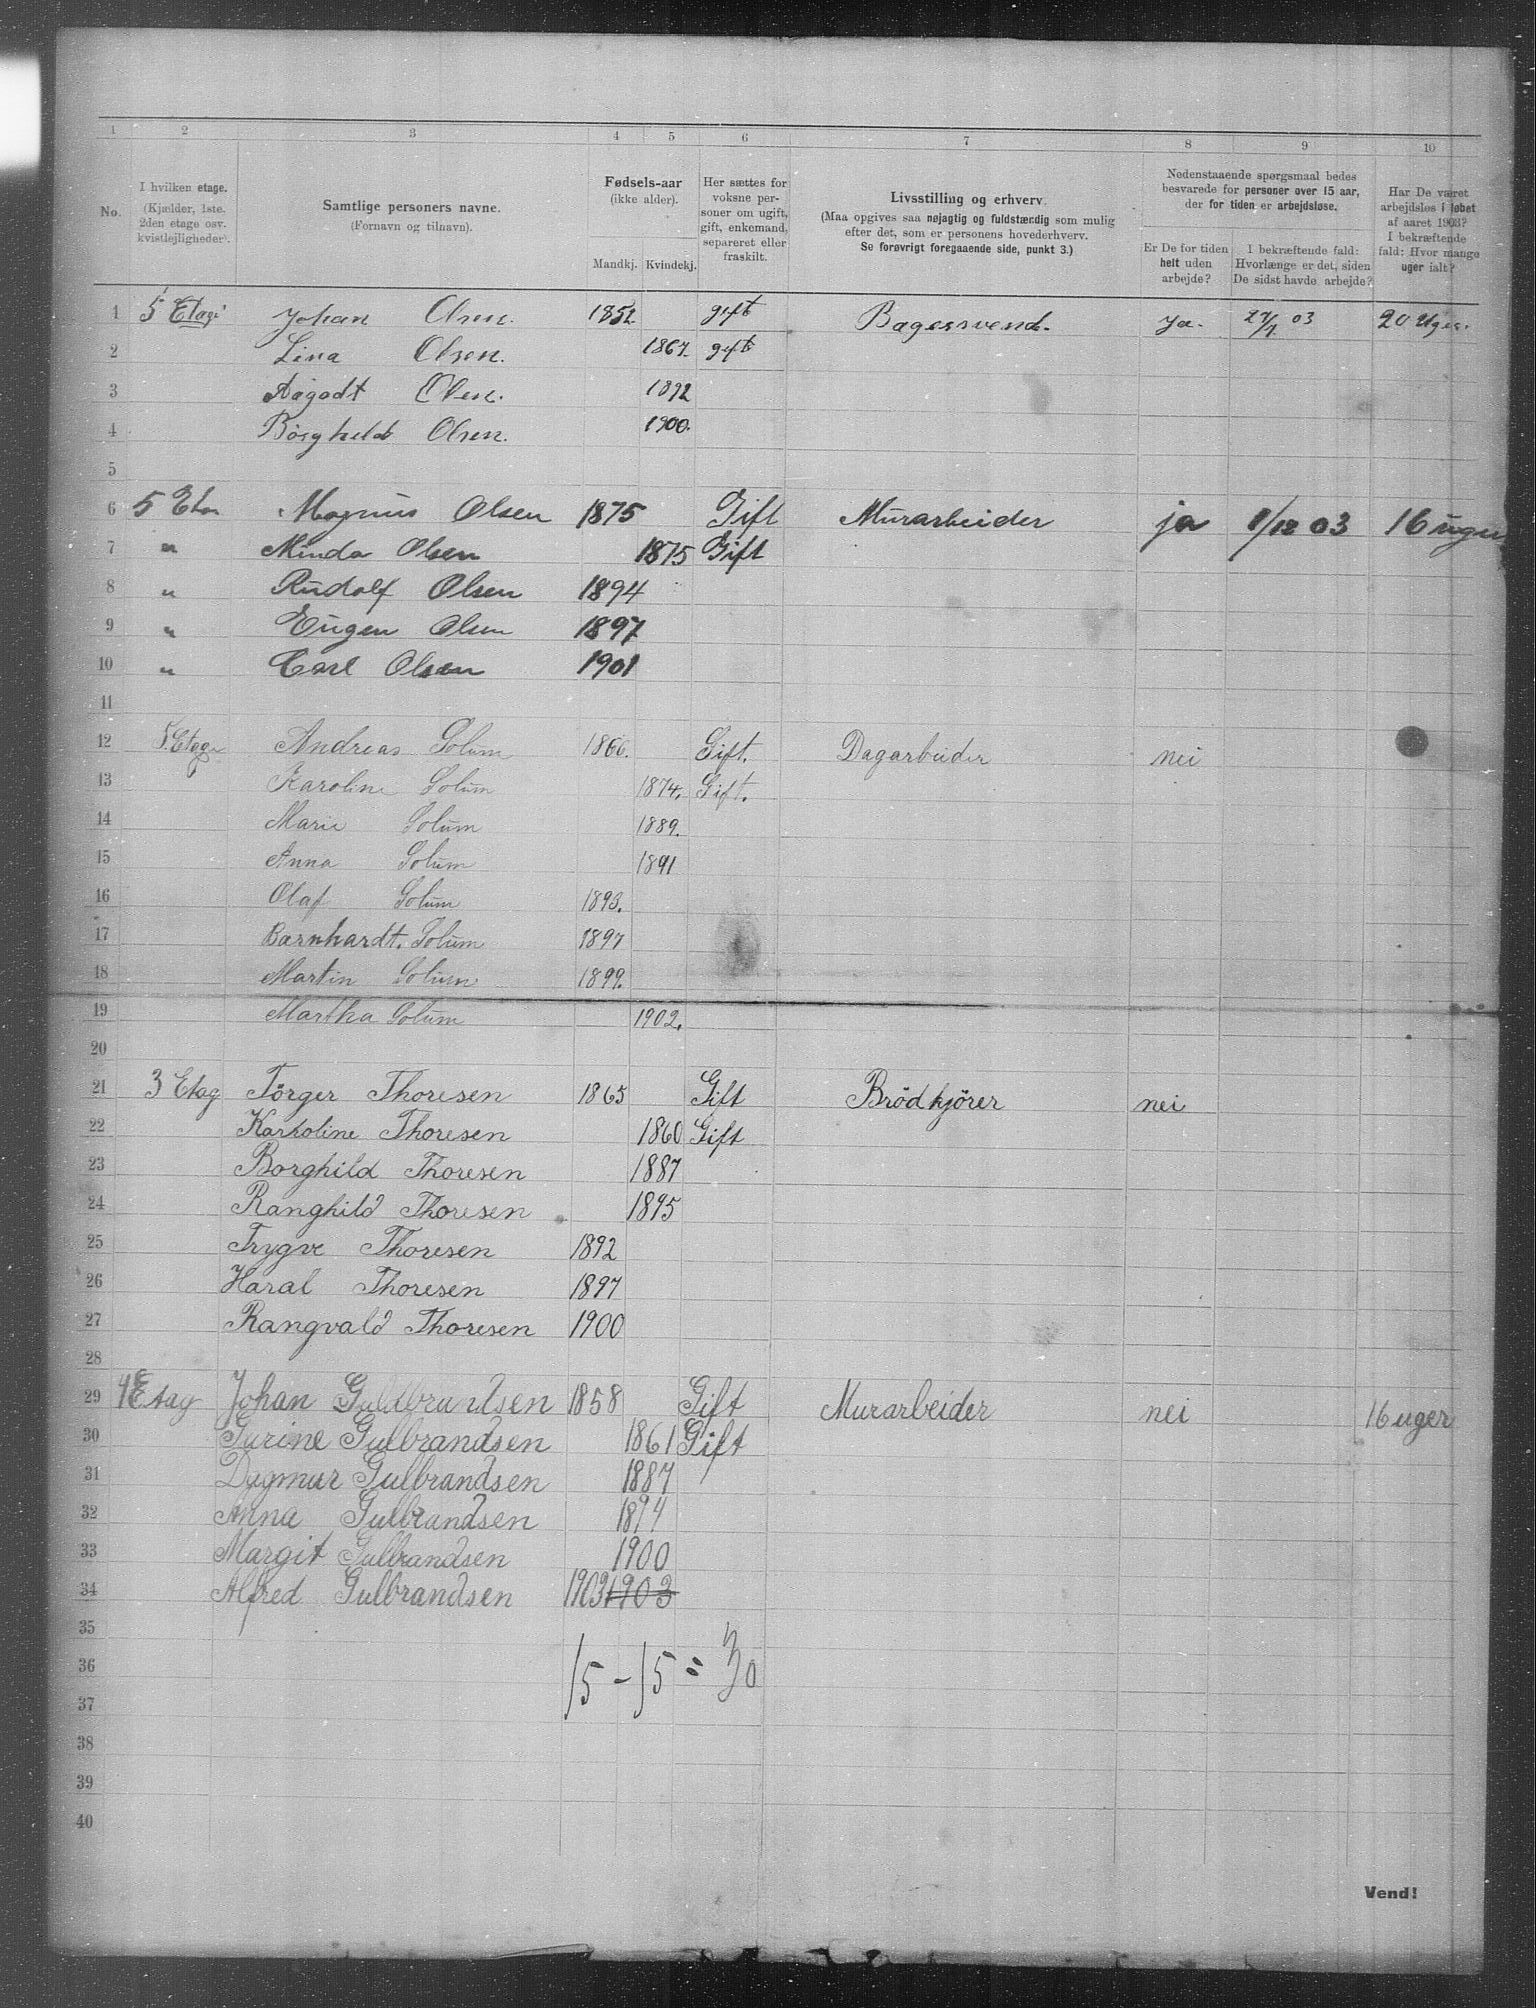 1 2 3 4 5 6 7 8 9 10
No. I hvilken etage. (Kjælder, 1ste. 2den etage osv. kvistlejligheder). Samtlige personers navne. (Fornavn og tilnavn). Fødsels-aar (ikke alder). Mandkj. Kvindekj. Her sættes for voksne personer om ugift, gift, enkemand, separeret eller fraskilt. Livsstilling og erhverv. (Maa opgives saa nøjagtig og fuldstændig som mulig efter det, som er personens hovederhverv. Se forøvrigt foregaaende side, punkt 3.) Nedenstaaende spørgsmaal bedes besvarede for personer over 15 aar, der for tiden er arbejdsløse. Er De for tiden helt uden arbejde? I bekræftende fald: Hvorlænge er det, siden De sidst havde arbejde? Har De været arbejdsløs i løbet af aaret 1903? I bekræftende fald: Hvor mange uger ialt?
1 5 Etage Johan Olsen. 1852 gift Bagersvend. Ja. 03 20 Uger.
2 Lina Olsen. 1867. gift
3 Aagodt Olsen. 1892
4 Borghild Olsen. 1900.
5
6 5 Eta Magnus Olsen 1875 Gift Murarbeider ja 1/12 03 16 uger
7 " Minda Olsen 1875 Gift
8 " Rudolf Olsen 1894
9 " Eugen Olsen 1897
10 " Carl Olsen 1901
11
12 5. Etage Andreas Solum 1866. Gift. Dagarbeider nei
13 Karoline Solum 1874. Gift.
14 Marie Solum 1889.
15 Anna Solum 1891
16 Olaf Solum 1893.
17 Barnhardt. Solum 1897
18 Martin Solum 1899.
19 Martha Solum 1902.
20
21 3 Etag Törger Thoresen 1865 Gift Brödkjörer nei
22 Karholine Thoresen 1860 Gift
23 Borghild Thoresen 1887
24 Ranghild Thoresen 1895
25 Trygve Thoresen 1892
26 Haral Thoresen 1897
27 Rangvald Thoresen 1900
28
29 4 Etag Johan Guldbrandsen 1858 Gift Murarbeider nei 16 uger
30 Gurine Gulbrandsen 1861 Gift
31 Dagmar Gulbrandsen 1887
32 Anna Gulbrandsen 1894
33 Margit Gulbrandsen 1900
34 Alfred Gulbrandsen 1903 1903
35
36 15 - 15 = 30
37
38
39
40
Vend!